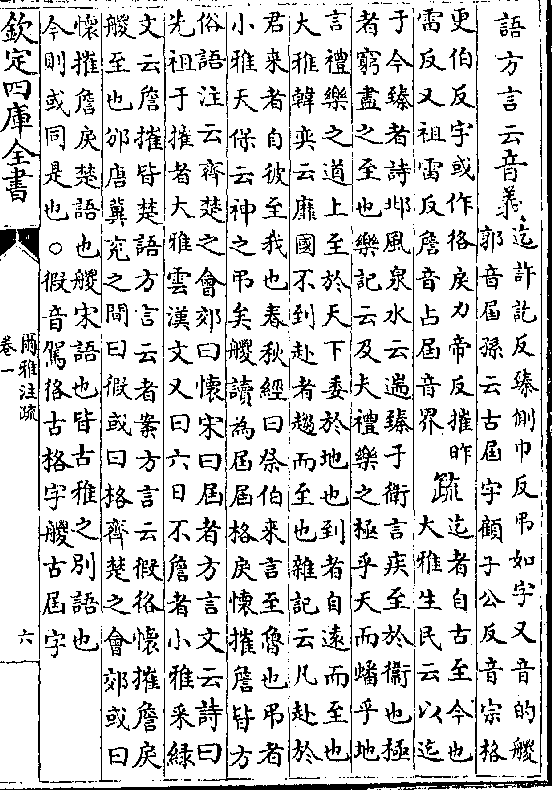 語方言云音義迄許訖反臻側巾反弔如字又音的艐
郭音屆孫云古屆字顧子公反音宗格
更伯反字或作佫戾力帝反摧昨
雷反又祖雷反詹音占屆音界
疏迄者自古至今也
大雅生民云以迄
于今臻者詩邶風泉水云遄臻于衛言疾至於衛也極
者窮盡之至也樂記云及夫禮樂之極乎天而蟠乎地
言禮樂之道上至於天下委於地也到者自遠而至也
大雅韓奕云靡國不到赴者趨而至也雜記云凡赴於
君来者自彼至我也春秋經曰祭伯來言至魯也弔者
小雅天保云神之弔矣艐讀為屆屆格戾懷摧詹皆方
俗語注云齊楚之會郊曰懷宋曰屆者方言文云詩曰
先祖于摧者大雅雲漢文又曰六日不詹者小雅采綠
文云詹摧皆楚語方言云者案方言云徦佫懷摧詹戾
艐至也邠唐冀兖之間曰徦或曰格齊楚之會郊或曰
懷摧詹戾楚語也艐宋語也皆古雅之別語也
今則或同是也○徦音駕佫古格字艐古屆字
欽定四庫全書
爾雅注疏
卷一
六